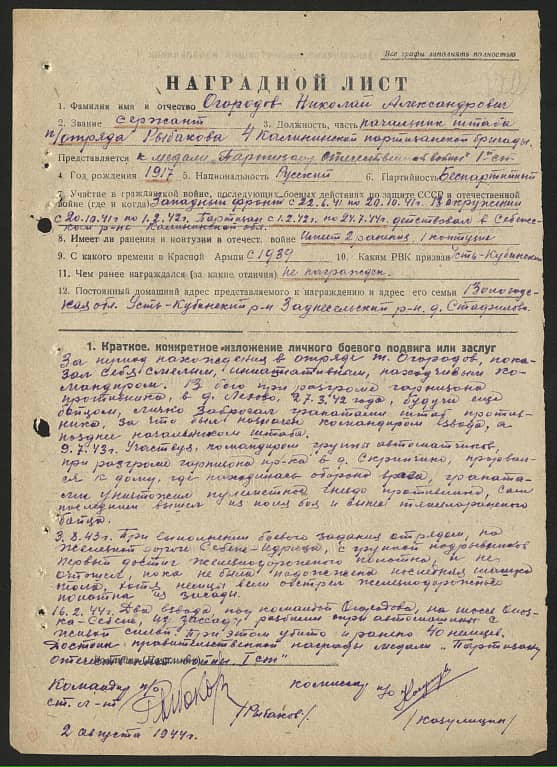 Все графы заполнять полностью
НАГРАДНОЙ ЛИСТ
1. Фамилия имя и отчество Огородов Николай Александрович
2. Звание сержант 3. Должность, часть начальник штаба
п/отряда Рыбакова 4 Калининской партизанской бригады.
Представляется к медали "Партизану Отечественной войны" I ст.
4. Год рождения 1917 5. Национальность Русский 6. Партийность Беспартийный
7. Участие в гражданской войне, последующих боевых действиях по защите СССР и отечественной
войне (где и когда) Западный фронт с 22.6.41 по 20.10.41г. В окружении
с 20.10.41 по 1.2.42г. Партизан с 1.2.42г. по 27.7.44г. действовал в Себеж-
ском р-не Калининской обл.
8. Имеет ли ранения и контузии в отечест. войне Имеет 2 ранения, 1 контузие
9. С какого времени в Красной Армии с 1939 10. Каким РВК призван Усть-Кубинским
11. Чем ранее награждался (за какие отличия) Не награжден.
12. Постоянный домашний адрес представляемого к награждению и адрес его семьи Вологод-
ская обл. Усть-Кубинский р-н Заднесельский р-н. д.
1. Краткое, конкретное изложение личного боевого подвига или заслуг
За период нахождения в отряде т. Огородов, пока-
зал себя смелым, инициативным, находчивым ко-
мандиром. В бою при разгроме гарнизона
противника, в д. 27.3.42 года, будучи еще
бойцом, лично забросал гранатами штаб против-
ника, за что был назначен командиром взвода, а
позднее начальником штаба.
9.7.43г. Участвуя, командиром группы автоматчиков,
при разгроме гарнизона пр-ка в д. прорвал-
ся к дому, где находилась оборона врага, граната-
ми уничтожил пулеметное гнездо противника, сам
последним вышел из поля боя и вынес тяжелораненого
бойца.
3.8.43г. При выполнении боевого задания отрядом, на
железной дороге Себеж-Идрица, с группой подрывников
первый достиг железнодорожного полотна, и не
отошел, пока не была подожжена последняя шашка
тола, хотя немцы вели обстрел железнодорожного
полотна из засады.
16.2.44г. Два взвода, под командой Огородова, на шоссе Опоч-
ка-Себеж, из засады разбили три автомашины с
живой силой. При этом убито и ранено 40 немцев.
Достоин правительственной награды медали "Партизану
отечественной войны I ст"
Командир п/о комиссар п/о
ст. л-нт
/Рыбаков/ /Казулицин/
2 августа 1944г.